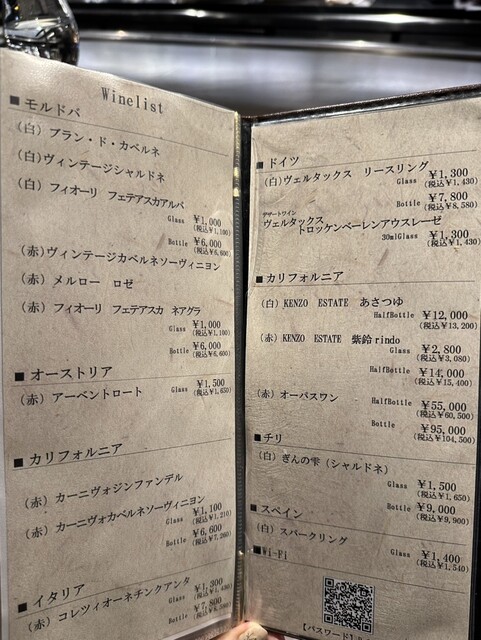 Winelist
■ モルドバ
(白) ブラン・ド・カベルネ
(白)ヴィンテージシャルドネ
(白) フィオーリ フェテアスカアルバ
Glass ¥1,000
(税込¥1,100)
Bottle ¥6,000
(税込¥6,600)
(赤)ヴィンテージカベルネソーヴィニヨン
(赤) メルロー ロゼ
(赤) フィオーリ フェテアスカ ネアグラ
Glass ¥1,000
(税込¥1,100)
Bottle ¥6,000
(税込¥6,600)
■ オーストリア
(赤) アーベントロート Glass ¥1,500
(税込¥1,650)
■ カリフォルニア
(赤) カーニヴォジンファンデル
(赤) カーニヴォカベルネソーヴィニヨン
Glass ¥1,100
(税込¥1,210)
Bottle ¥6,600
(税込¥7,260)
■ イタリア
(赤) コレツィオーネチンクアンタ
Glass ¥1,300
(税込¥1,430)
Bottle ¥7,800
(税込¥8,580)
■ ドイツ
(白)ヴェルタックス リースリング
Glass ¥1,300
(税込¥1,430)
Bottle ¥7,800
(税込¥8,580)
デザートワイン
ヴェルタックス
トロッケンベーレンアウスレーゼ
30mlGlass ¥1,300
(税込¥1,430)
■ カリフォルニア
(白) KENZO ESTATE あさつゆ
HalfBottle ¥12,000
(税込¥13,200)
(赤) KENZO ESTATE 紫鈴 rindo
Glass ¥2,800
(税込¥3,080)
HalfBottle ¥14,000
(税込¥15,400)
(赤) オーパスワン HalfBottle ¥55,000
(税込¥60,500)
Bottle ¥95,000
(税込¥104,500)
■ チリ
(白) ぎんの雫 (シャルドネ)
Glass ¥1,500
(税込¥1,650)
Bottle ¥9,000
(税込¥9,900)
■ スペイン
(白) スパークリング
Glass ¥1,400
(税込¥1,540)
■Wi-Fi
【パスワード】